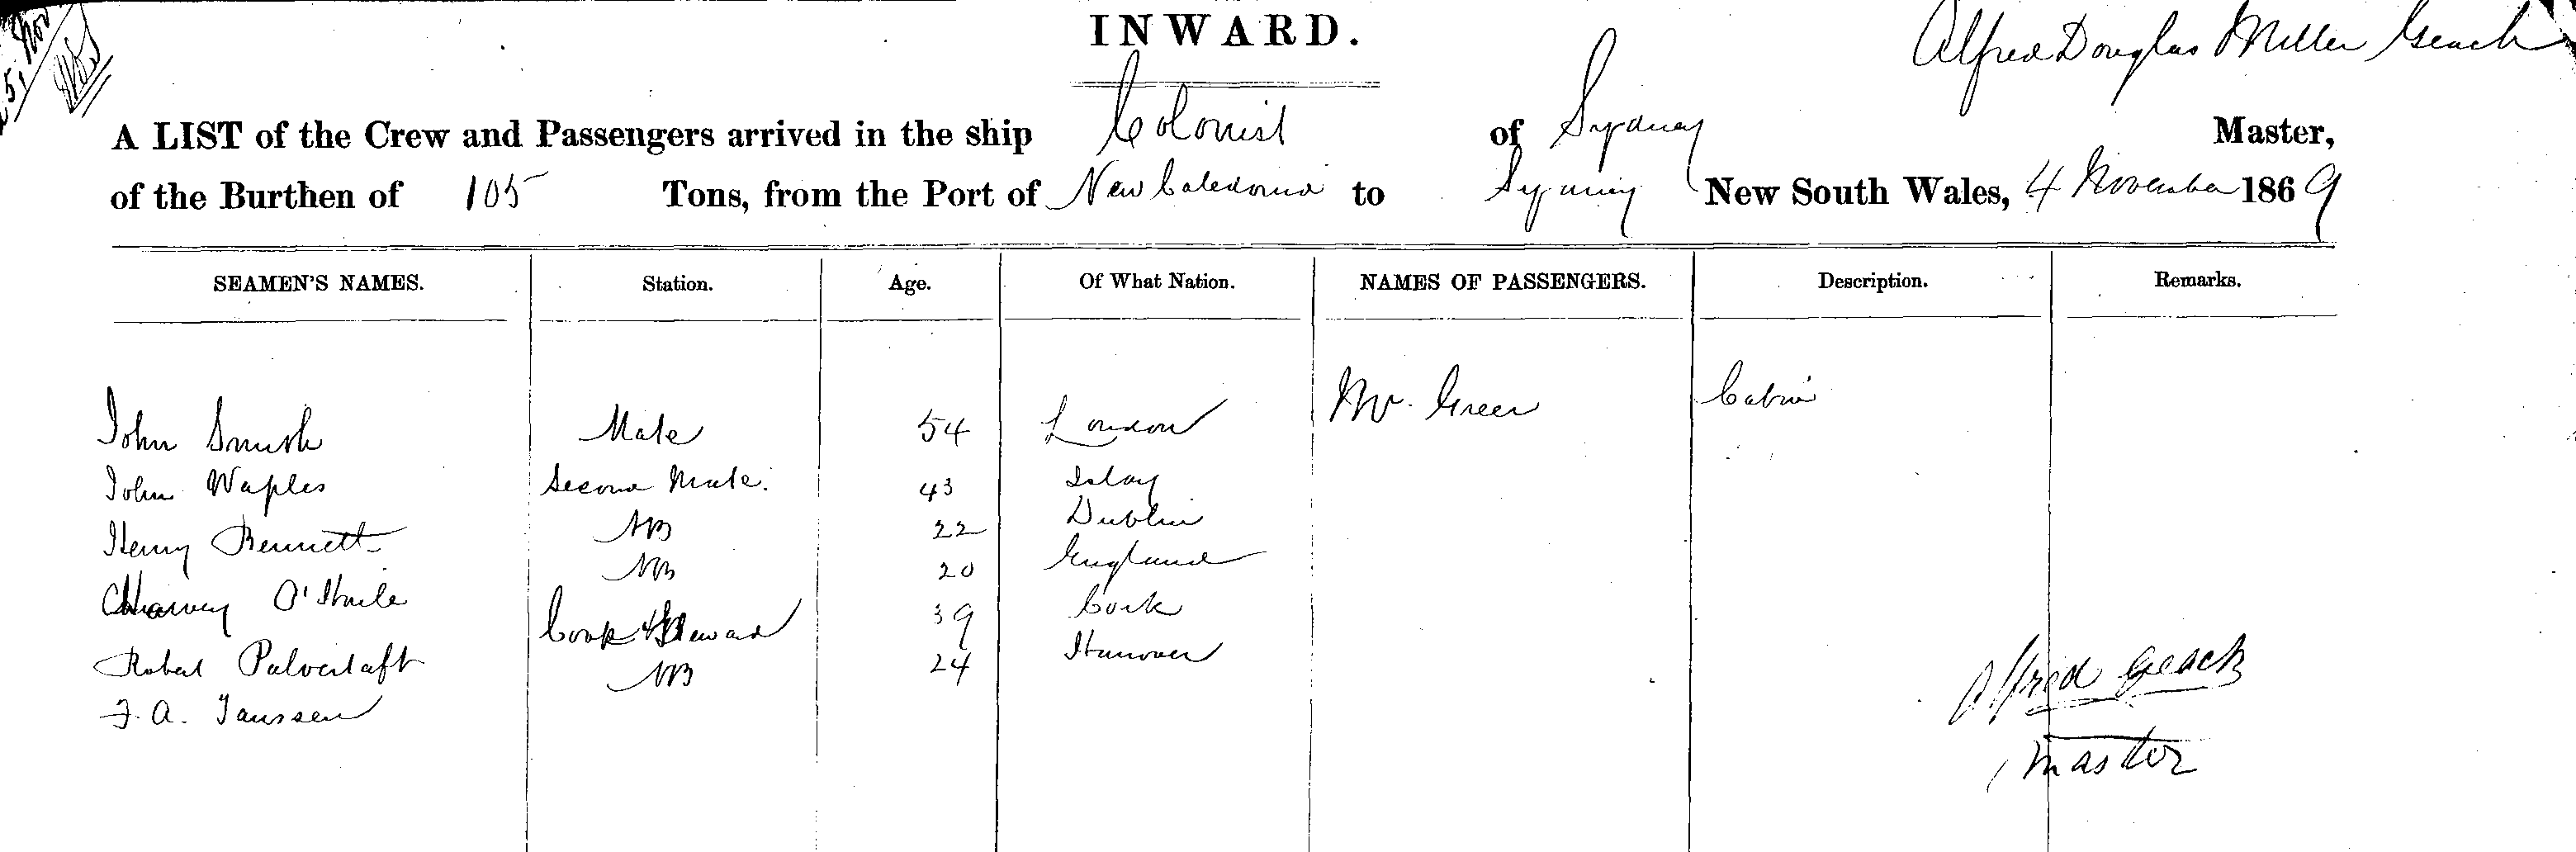 5, Nov
INWARD.
Alfred Douglas Miller Geach
A LIST of the Crew and Passengers arrived in the ship Colonist of Sydney Master,
of the Burthen of 105 Tons, from the Port of New Caledonia to Sydney New South Wales, 4 November 1869
SEAMEN'S NAMES. Station. Age. Of What Nation. NAMES OF PASSENGERS. Description. Remarks.
John Smith Mate 54 London Mr. Green Cabin
John Waples Second Mate. 43 Islay
Henry Bennett AB 22 Dublin
Harvey AB 20 England
Robert Pulvertaft Cook & Steward 39 Cork
F. A. Janssen AB 24 Hanover
Alfred Geach
Master